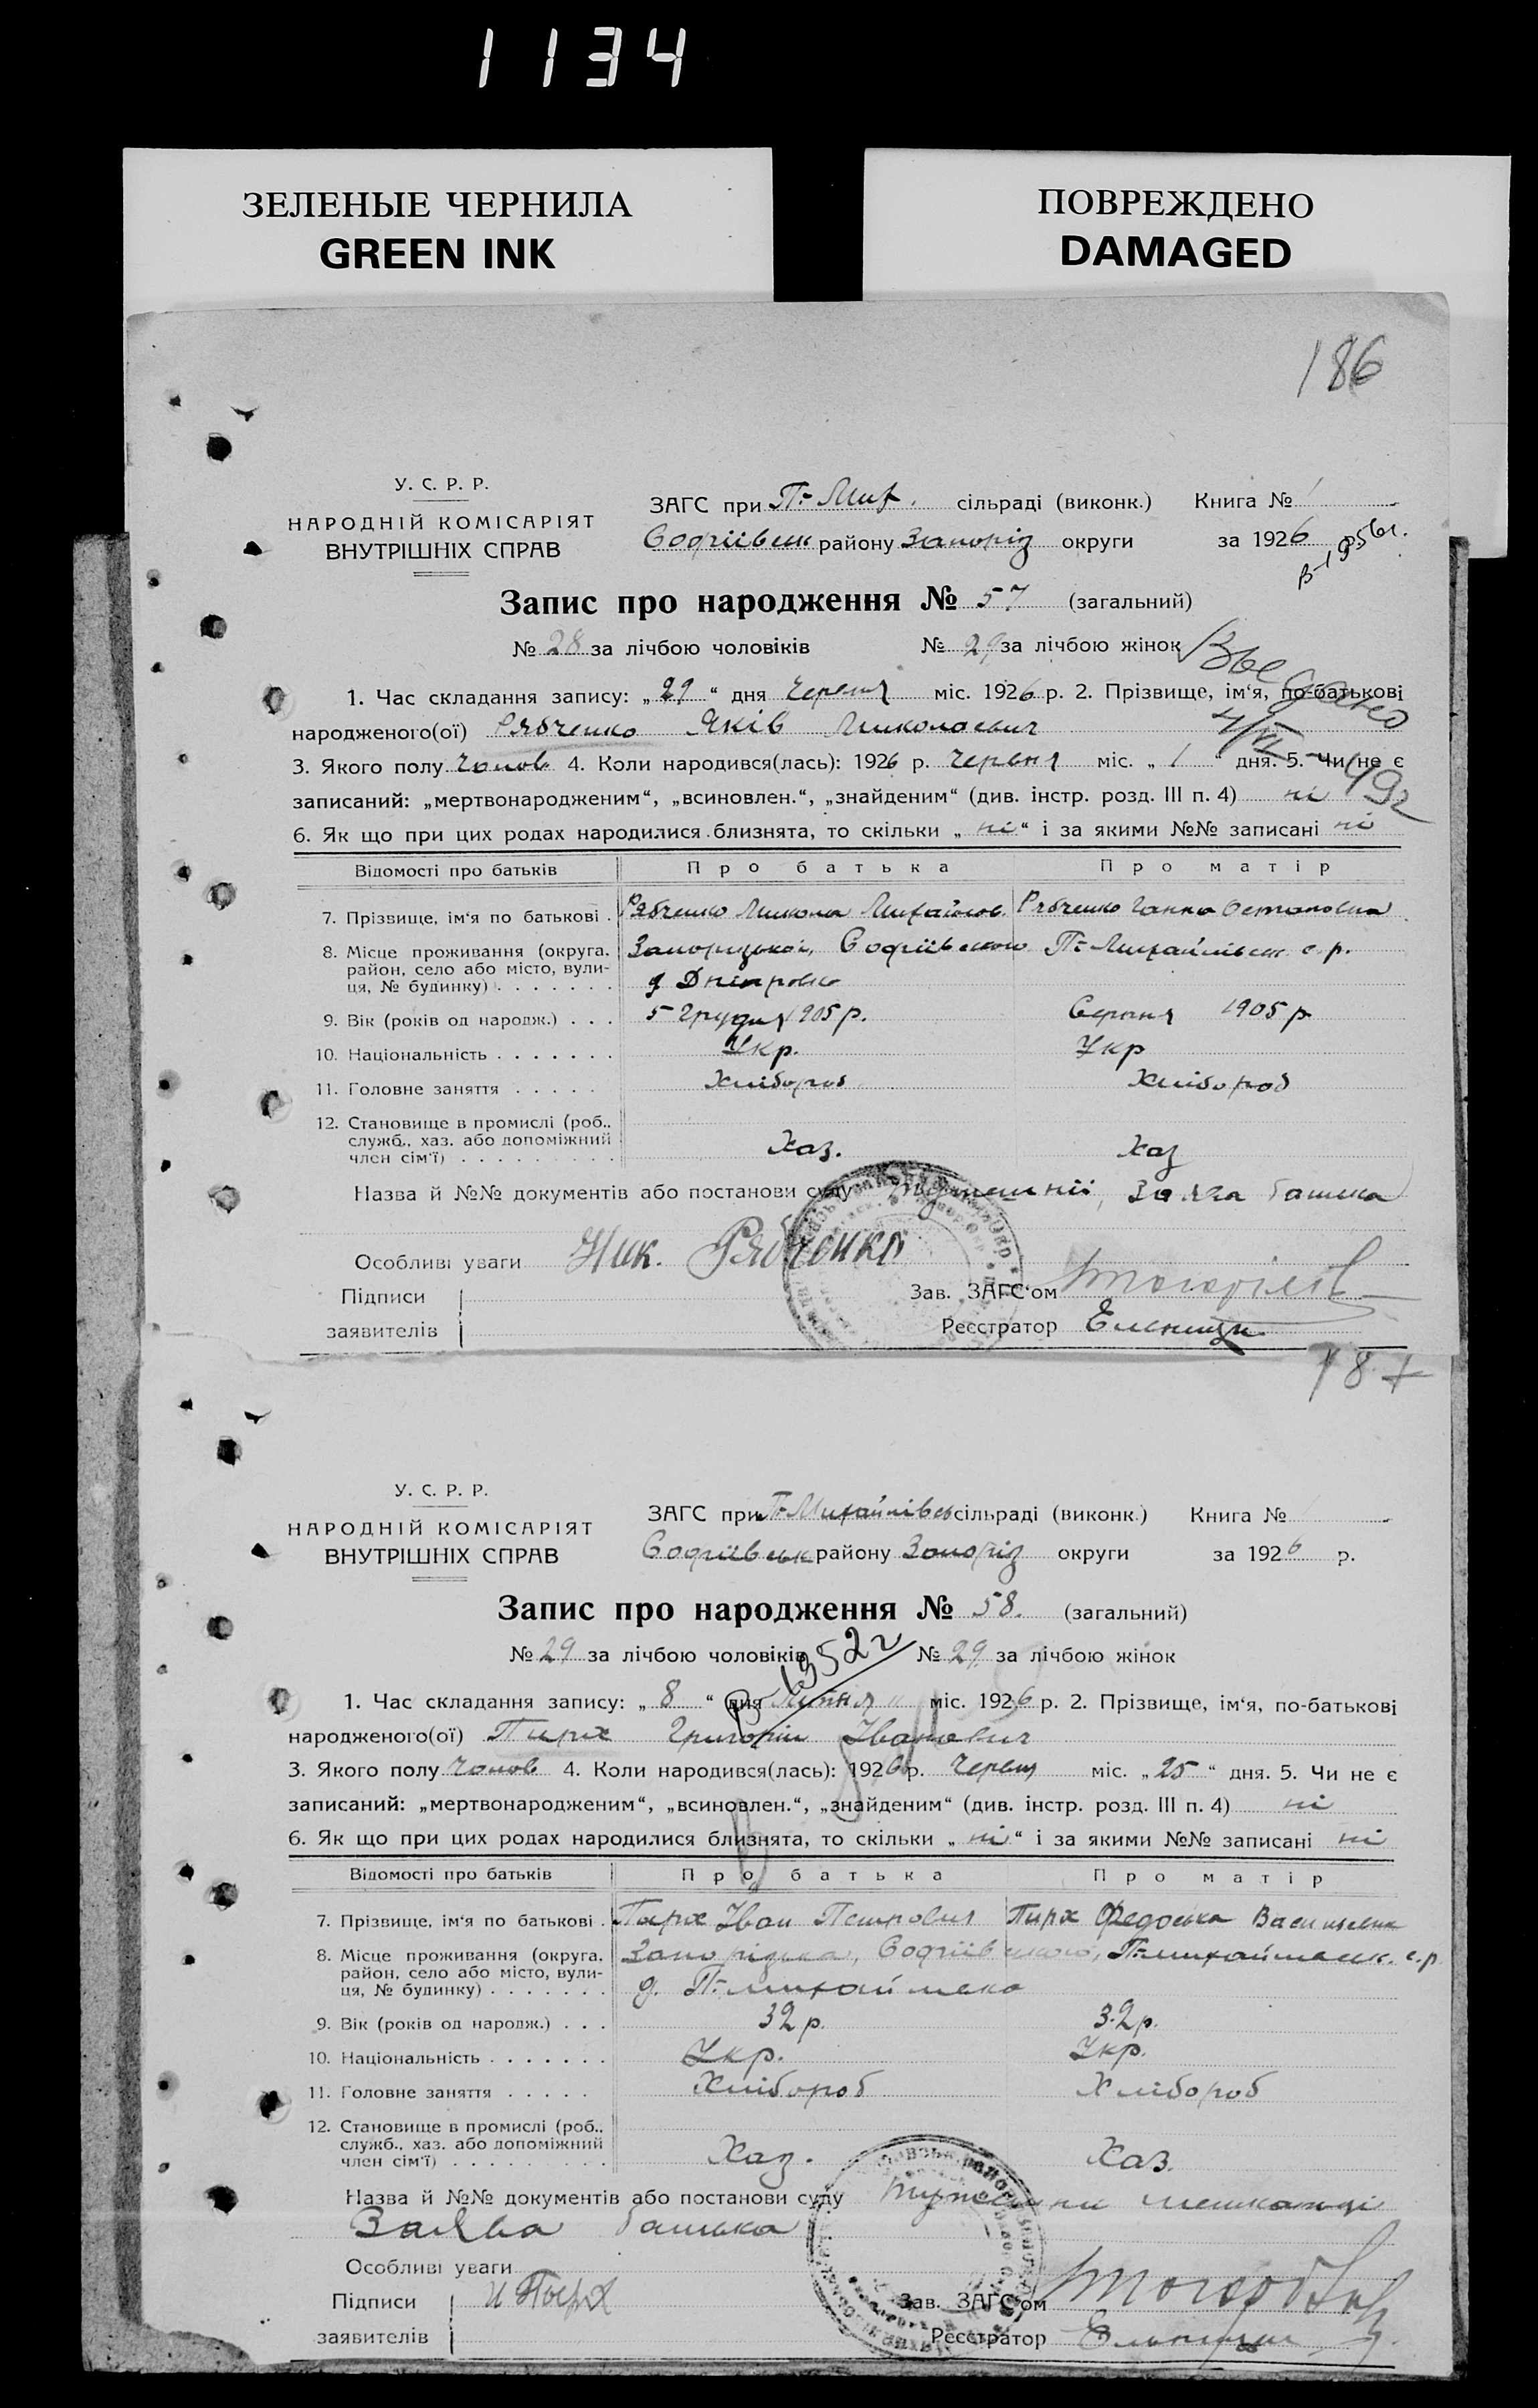 1134
ЗЕЛЕНЫЕ ЧЕРНИЛА
GREEN INK
ПОВРЕЖДЕНО
DAMAGED
186
У. С. Р. Р.
НАРОДНІЙ КОМІСАРІЯТ
ВНУТРІШНІХ СПРАВ
ЗАГС при П.-Мих. сільраді (виконк.) Книга № 1
Софіївськ району Запоріз округи за 1926
Запис про народження № 57 (загальний)
№ 28 за лічбою чоловіків № 29 за лічбою жінок
1. Час складання запису: „ 29 “ дня Червня міс. 1926 р. 2. Прізвище, ім‘я, по-батькові
народженого(ої) Рябченко Яків Миколаевич
3. Якого полу Чолов 4. Коли народився(лась): 1926 р. Червня міс. „ 1 “ дня. 5. Чи не є
записаний: „мертвонародженим“, „всиновлен.“, „знайденим“ (див. інстр. розд. III п. 4) ні
6. Як що при цих родах народилися близнята, то скільки „ ні “ і за якими №№ записані ні
Відомості про батьків Про батька Про матір
7. Прізвище, ім‘я по батькові . Рябченко Микола Михайлов. Рябченко Ганна Остаповна
8. Місце проживання (округа, район, село або місто, вулиця, № будинку) Запорізької, Софіївського П.-Михайлівськ. с. р.
9. Вік (років од народж.) . . . 5 Грудня 1905 р. Серпня 1905 р.
10. Національність . . . . . . . Укр. Укр
11. Головне заняття . . . . . Хлібороб Хлібороб
12. Становище в промислі (роб., служб., хаз. або допоміжний член сім‘ї) . . . . . . . . . Хаз. Хаз
Назва й №№ документів або постанови суду заява батька
Особливі уваги Ник. Рябченко
Підписи Зав. ЗАГС‘ом
заявителів Реєстратор
187
У. С. Р. Р.
НАРОДНІЙ КОМІСАРІЯТ
ВНУТРІШНІХ СПРАВ
ЗАГС при П.-Михайлівсь сільраді (виконк.) Книга №
Софіївськ району Запоріз округи за 1926 р.
Запис про народження № 58. (загальний)
№ 29 за лічбою чоловіків № 29 за лічбою жінок
1. Час складання запису: „ 8 “ дня Липня міс. 1926 р. 2. Прізвище, ім‘я, по-батькові
народженого(ої) Пирх Григорій Іванович
3. Якого полу Чолов 4. Коли народився(лась): 1926 р. Червня міс. „ 25 “ дня. 5. Чи не є
записаний: „мертвонародженим“, „всиновлен.“, „знайденим“ (див. інстр. розд. III п. 4) ні
6. Як що при цих родах народилися близнята, то скільки „ ні “ і за якими №№ записані ні
Відомості про батьків Про батька Про матір
7. Прізвище, ім‘я по батькові . Пирх Іван Петрович Пирх Федоська Васильевна
8. Місце проживання (округа, район, село або місто, вулиця, № будинку) . . . . . . . Запорізька, Софіївського, с. р.
9. Вік (років од народж.) . . . 32 р. 32 р.
10. Національність . . . . . . . Укр. Укр.
11. Головне заняття . . . . . Хлібороб Хлібороб
12. Становище в промислі (роб., служб., хаз. або допоміжний член сім‘ї) . . . . . . . . . Хаз. Хаз.
Назва й №№ документів або постанови суду мешканці
Заява батька
Особливі уваги
Підписи Зав. ЗАГС‘ом
заявителів Реєстратор